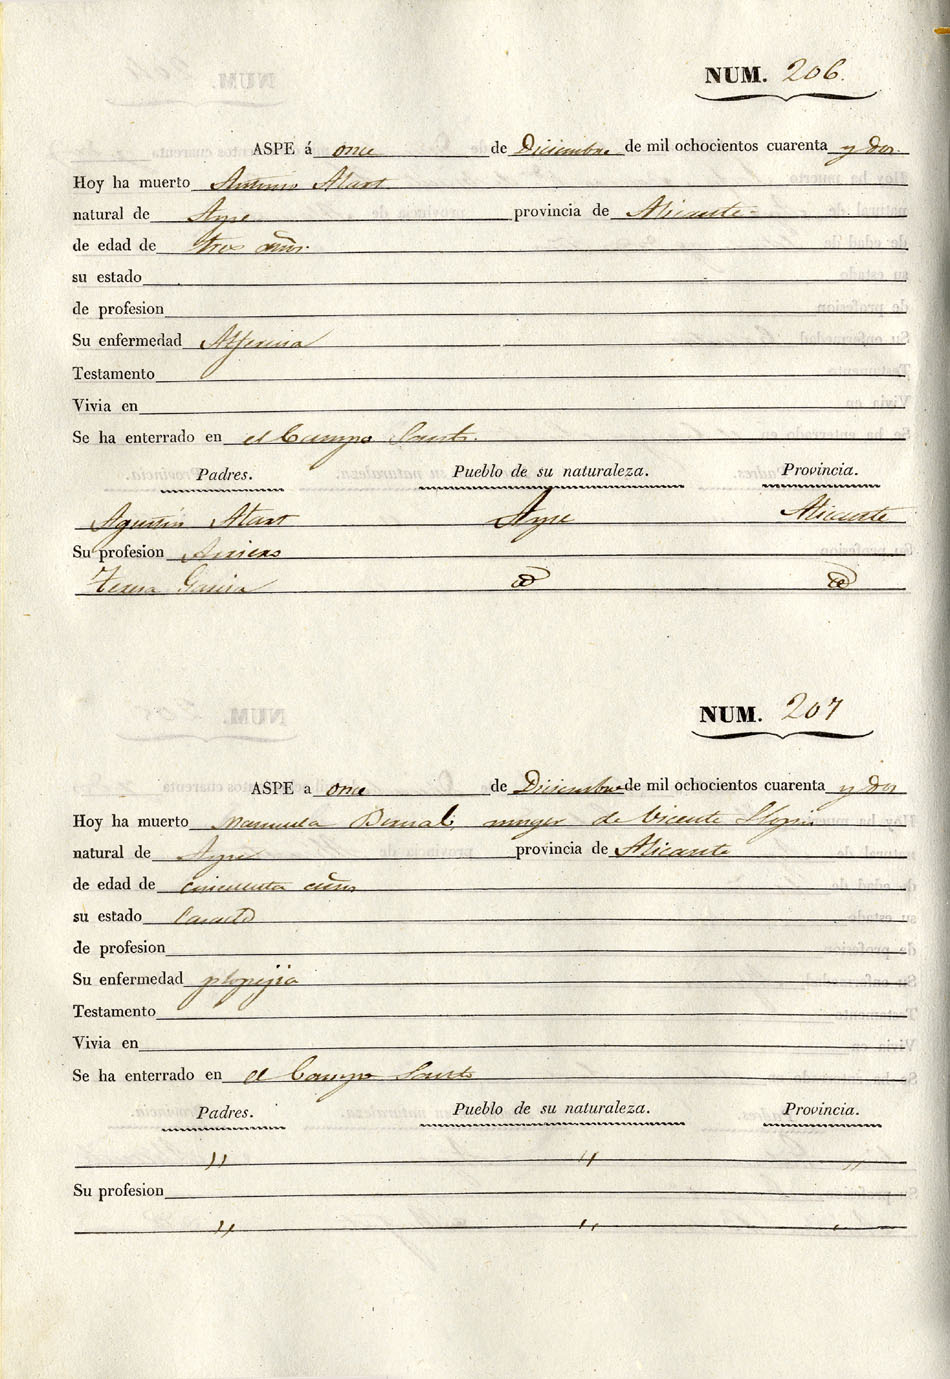 NUM. 206.
ASPE á once de Diciembre de mil ochocientos cuarenta y dos.
Hoy ha muerto Antonio Alart
natural de Aspe provincia de Alicante
de edad de tres años.
su estado
de profesion
Su enfermedad Alferecia
Testamento
Vivia en
Se ha enterrado en el Campo Santo.
Padres. Pueblo de su naturaleza. Provincia.
Agustin Alart Aspe Alicante
Su profesion Arriero
Teresa Garcia
NUM. 207
ASPE a once de Diciembre de mil ochocientos cuarenta y dos
Hoy ha muerto Manuela Bernal, muger de Vicente
natural de Aspe provincia de Alicante
de edad de cincuenta años
su estado Casada
de profesion
Su enfermedad
Testamento
Vivia en
Se ha enterrado en el Campo Santo
Padres. Pueblo de su naturaleza. Provincia.
" " "
Su profesion
" " "